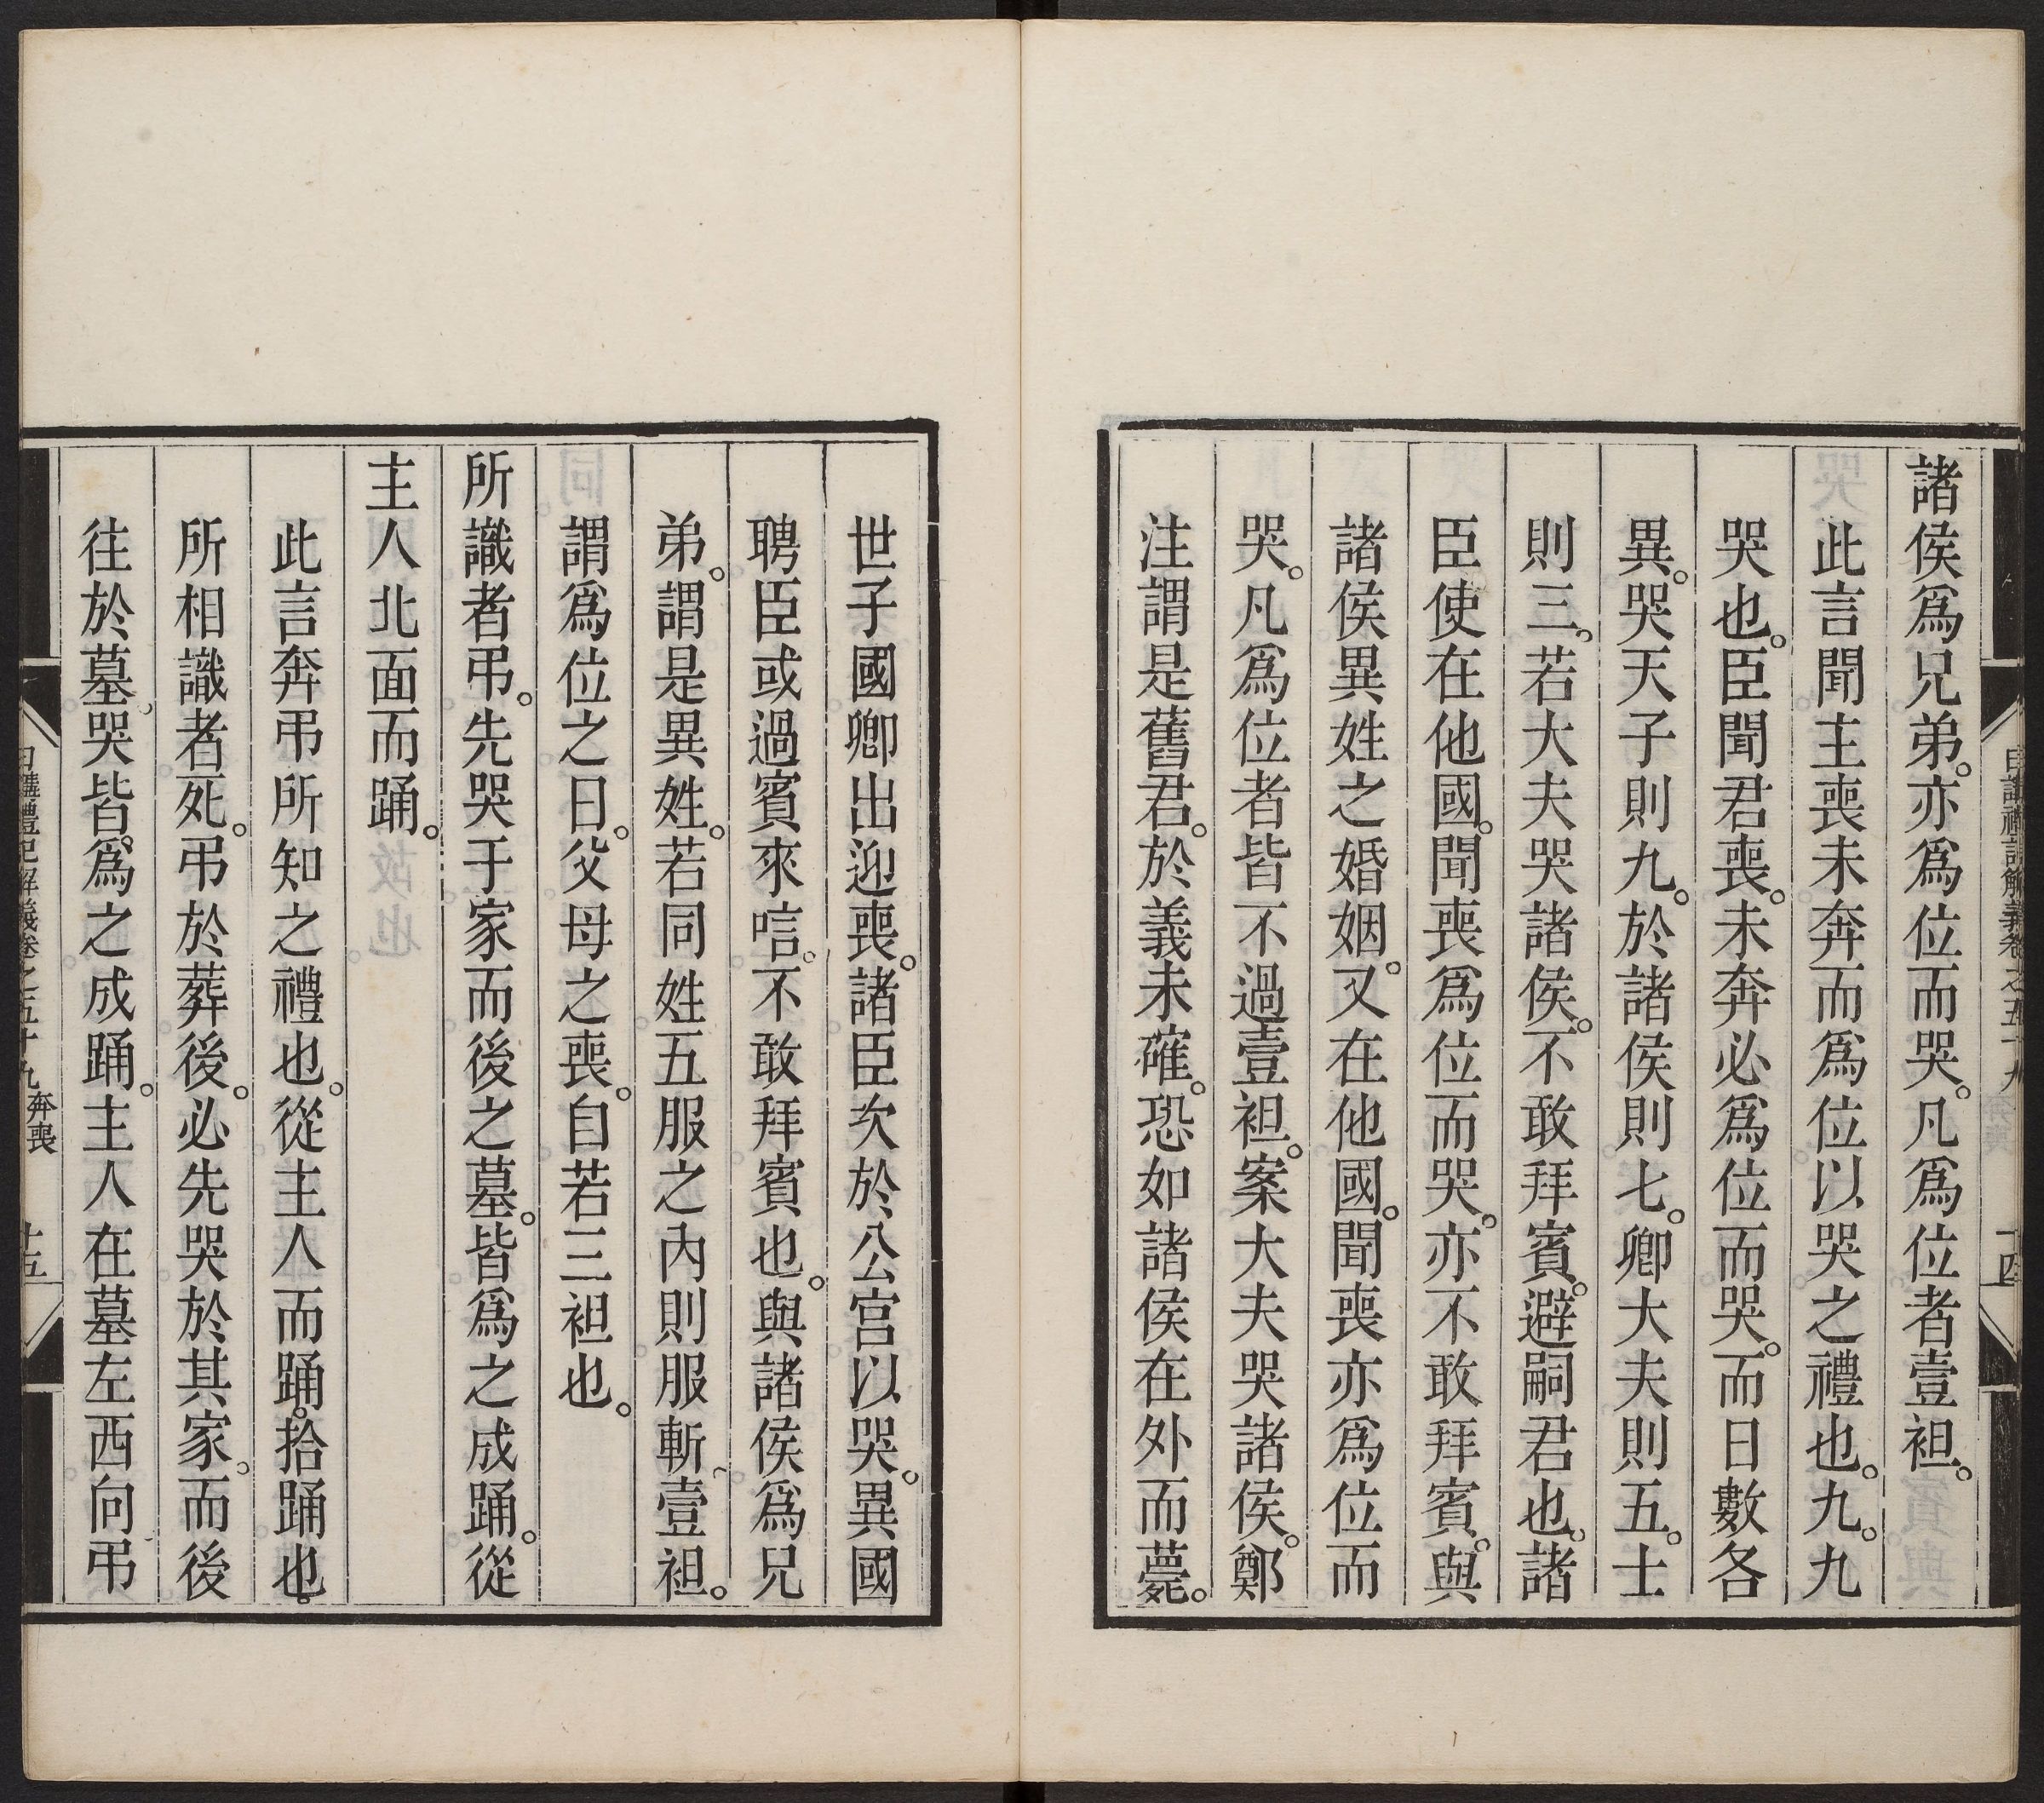 諸侯爲兄弟。亦爲位而哭。凡爲位者壹袒。
此言聞主喪未奔而爲位以哭之禮也。九。九
哭也。臣聞君喪。未奔必爲位而哭。而日數各
異。哭天子則九。於諸侯則七。卿大夫則五。士
則三。若大夫哭諸侯。不敢拜賓。避嗣君也。諸
臣使在他國。聞喪爲位而哭。亦不敢拜賓。與
諸侯異姓之婚姻。又在他國。聞喪亦爲位而
哭。凡爲位者皆不過壹袒。案大夫哭諸侯。鄭
注謂是舊君。於義未確。恐如諸侯在外而薨。
日講禮記解義卷之五十九
十四
世子國卿出迎喪。諸臣次於公宮以哭。異國
聘臣或過賓來唁。不敢拜賓也。與諸侯爲兄
弟。謂是異姓。若同姓五服之內則服斬。壹袒。
謂爲位之日。父母之喪。自若三袒也。
所識者弔。先哭于家而後之墓。皆爲之成踊。從
主人北面而踊。
此言奔弔所知之禮也。從主人而踊。拾踊也。
所相識者死。弔於葬後。必先哭於其家。而後
往於墓。哭皆爲之成踊。主人在墓左西向弔
日講禮記解義卷之五十九 奔喪
十五